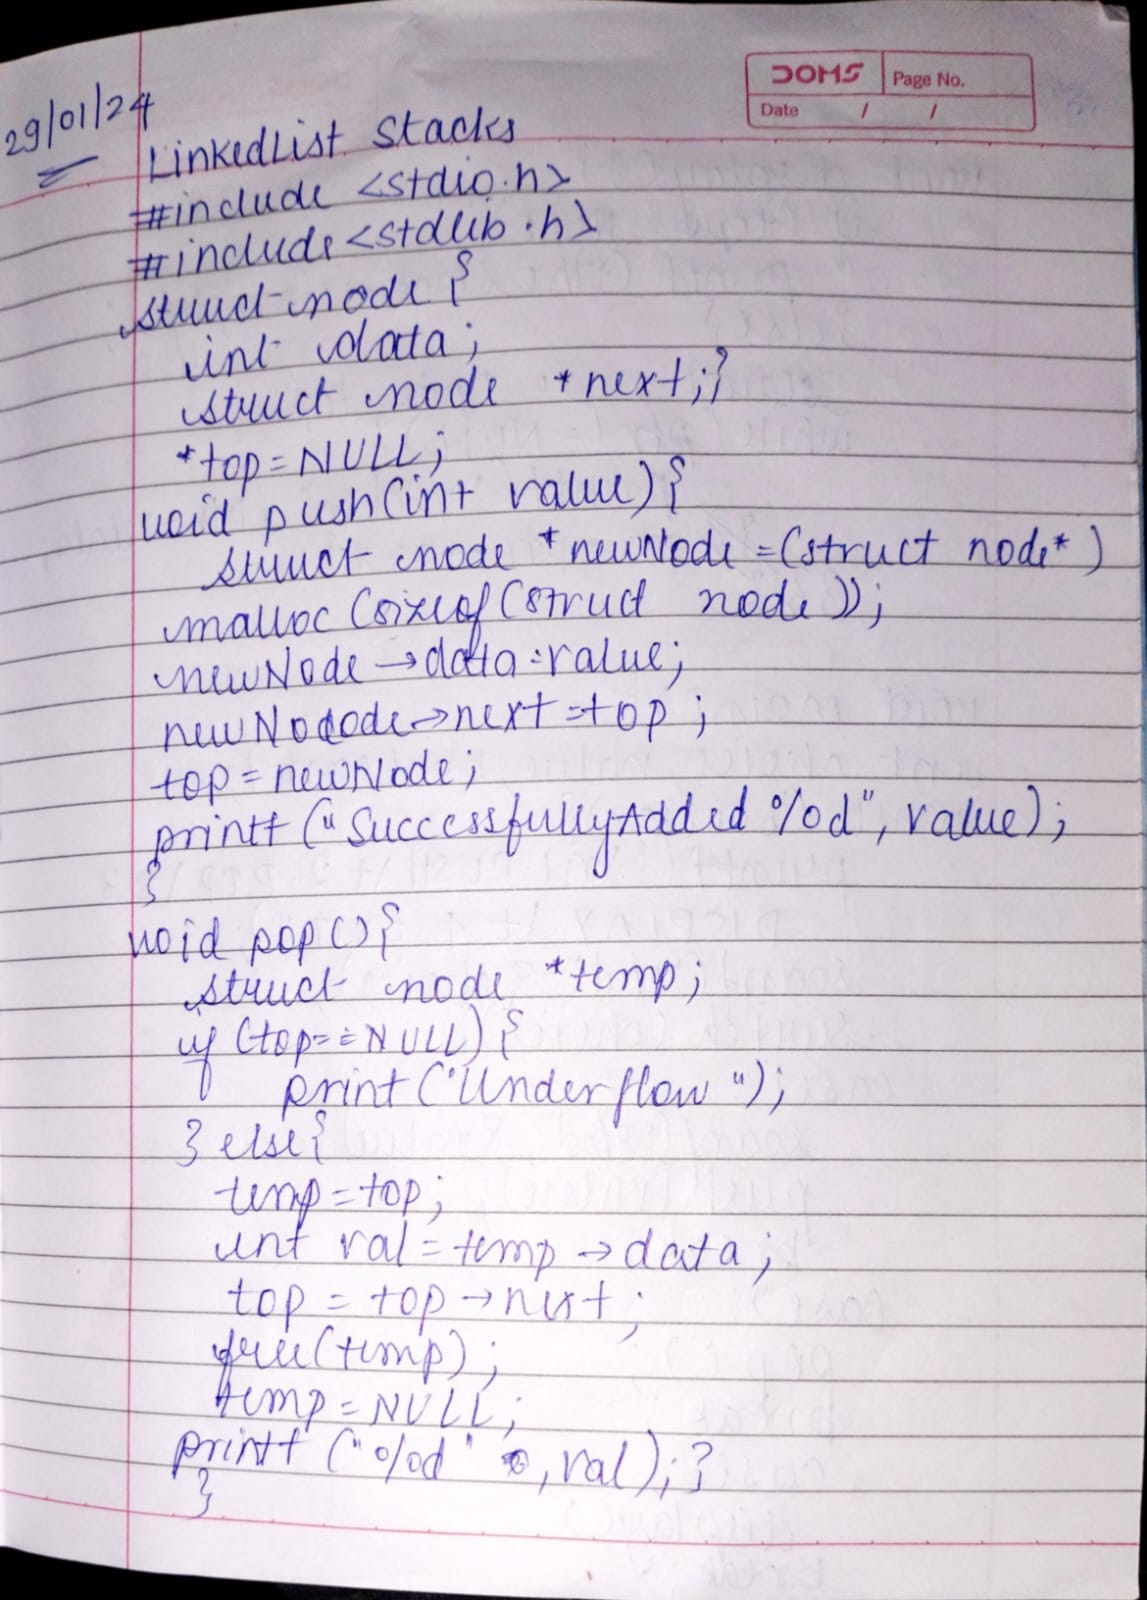 DOMS
Page No.
Date / /
29/01/24
LinkedList Stacks
#include <stdio.h>
#include <stdlib.h>
struct node {
int data;
struct node *next;}
*top=NULL;
void push(int value){
struct node *newNode=(struct node*)
malloc(sizeof(struct node));
newNode→data=value;
newNodode→next=top;
top=newNode;
printf("SuccessfullyAdded %d", value);
}
void pop(){
struct node *temp;
if (top==NULL){
print("Underflow");
} else{
temp=top;
int val=temp→data;
top=top→next;
free(temp);
temp=NULL;
printf("%d", val);}
}